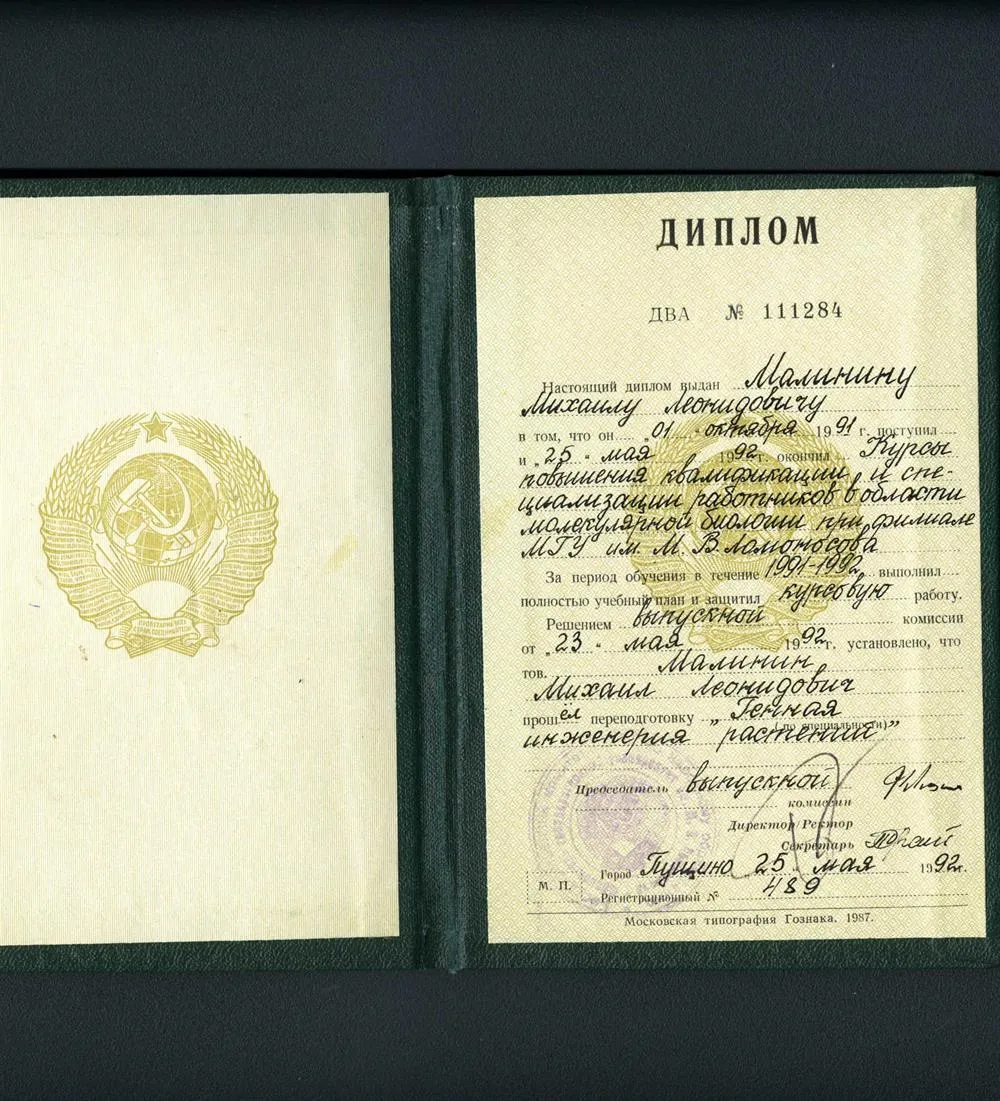 ДИПЛОМ
ДВА № 111284
Настоящий диплом выдан Малинину
Михаилу Леонидовичу
в том, что он „01" октября 1991 г. поступил
и „25" мая 1992 г. окончил Курсы
повышения квалификации и спе-
циализации работников в области
молекулярной биологии при филиале
МГУ им. М. В. Ломоносова
За период обучения в течение 1991-1992 выполнил
полностью учебный план и защитил курсовую работу.
Решением выпускной комиссии
от „23" мая 1992 г. установлено, что
тов. Малинин
Михаил Леонидович
прошёл переподготовку „Генная
(по специальности)
инженерия растений"
Председатель выпускной
комиссии
Директор/Ректор
Секретарь
Город Пущино 25 мая 1992 г.
М. П.
Регистрационный № 489
Московская типография Гознака. 1987.